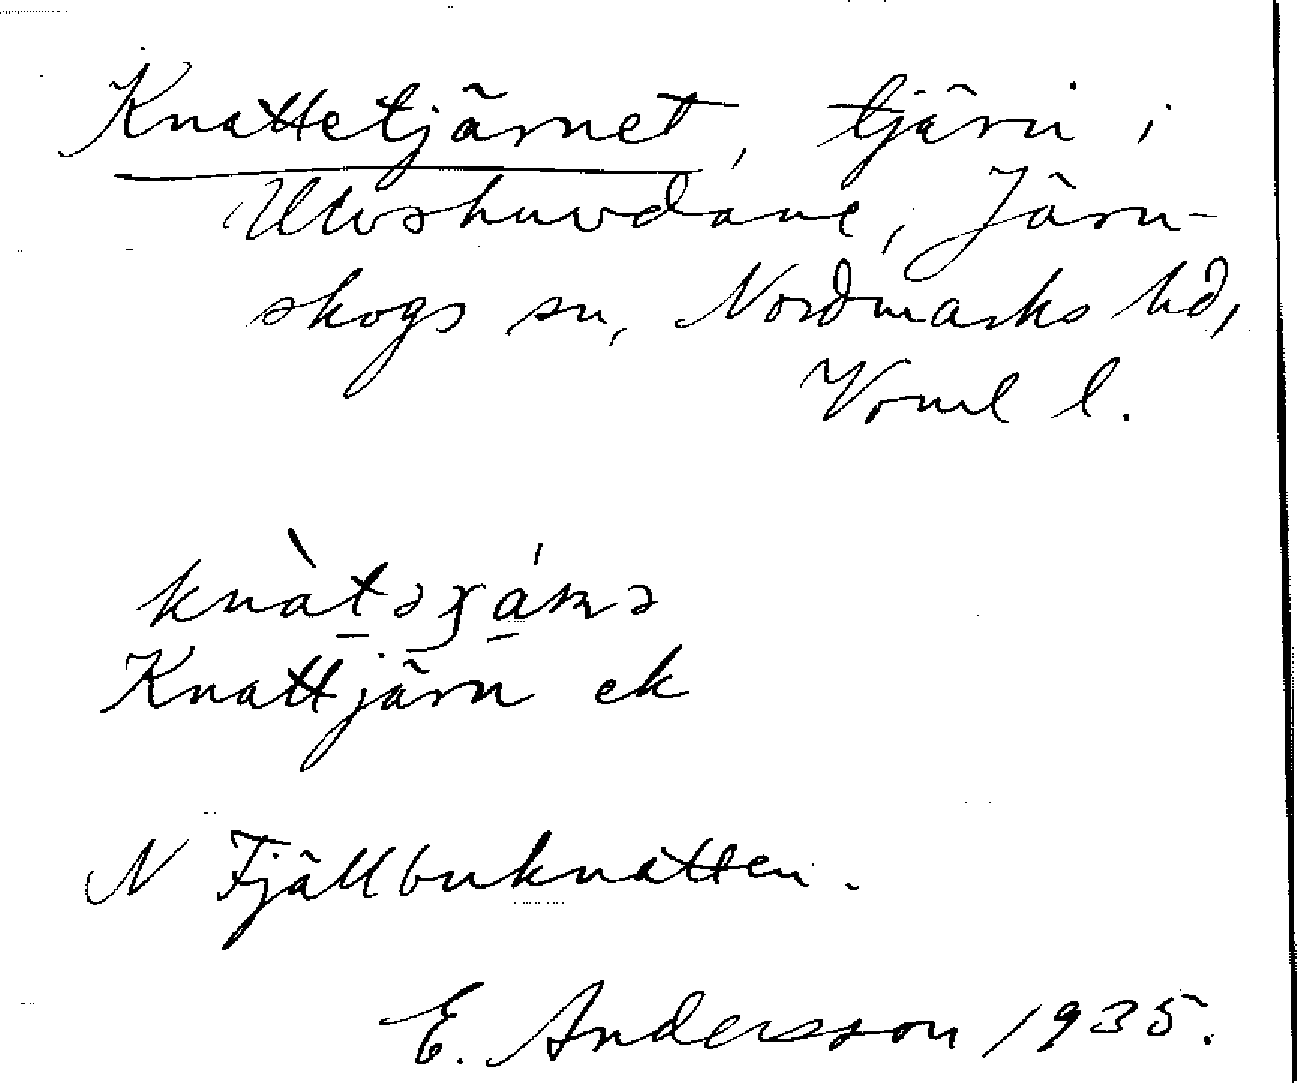 Knattetjärnet, tjärn i
Ulvshuvdane, Järn-
skogs sn, Nordmarks hd,
Vrml l.
Knattjärn ek
N Fjällbuknatten.
E. Andersson 1935.